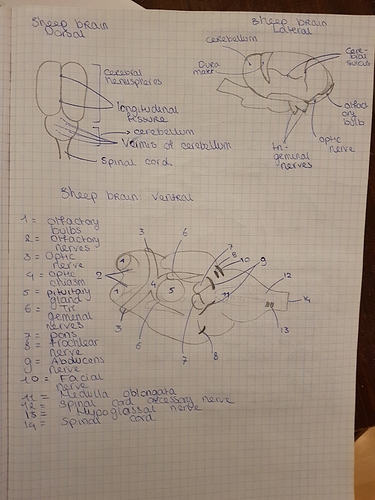 Sheep brain
Dorsal
Sheep brain
Lateral
cerebellum
Dura
mater
Cere-
bral
sulcus
cerebral
hemispheres
longitudinal
fissure
cerebellum
Vermis of cerebellum
Spinal cord
olfact
ory
bulb
optic
nerve
tri-
geminal
nerves
Sheep brain: Ventral
1 = olfactory
bulbs
2 = olfactory
nerves
3 = Optic
nerve
4 = optic
chiasm
5 = pituitary
gland
6 = Tri
geminal
nerves
7 = pons
8 = Trochlear
nerve
9 = Abducens
nerve
10 = Facial
nerve
11 = Medulla oblongata
12 = spinal cord accessory nerve
13 = Hypoglossal nerve
14 = Spinal cord
3
6
8
10
9
12
1
2
4
5
11
14
1
13
3
6
7
8